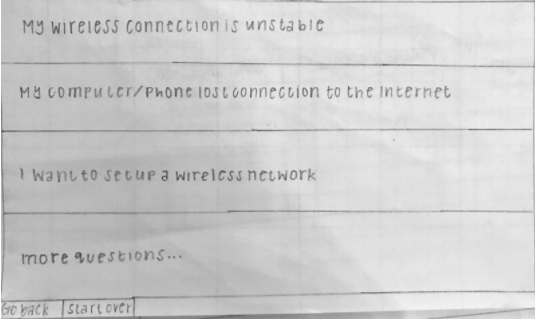 My wireless connection is unstable
My computer/Phone lost connection to the Internet
I want to setup a wireless network
more questions...
Go back
Start over